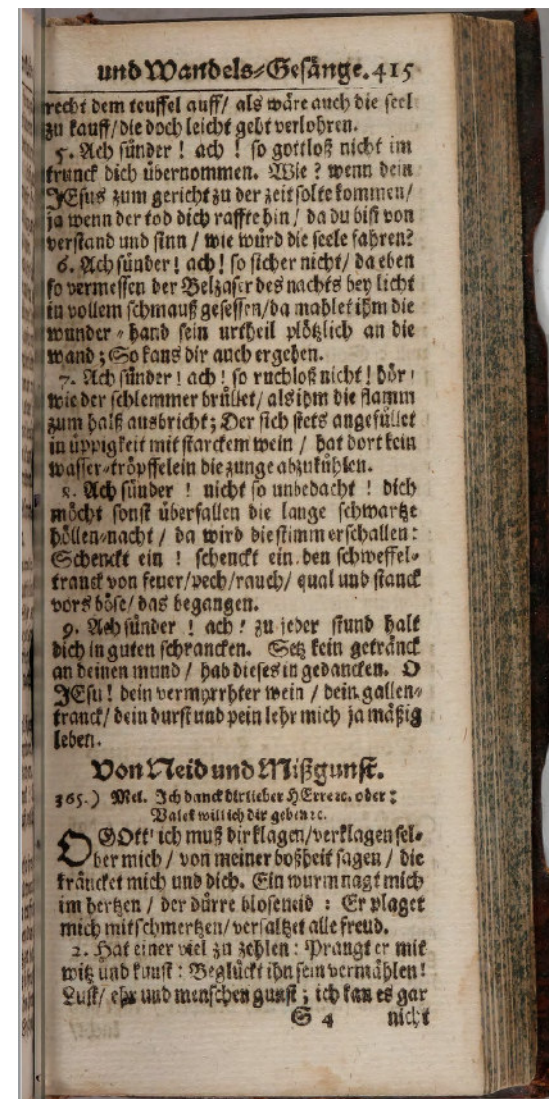 und Wandels-Gesänge. 415
recht dem teuffel auff/ als wäre auch die seel
zu kauff/die doch leicht geht verlohren.
5. Ach sünder ! ach ! so gottloß nicht im
trunck dich übernommen. Wie ? wenn dein
JEsus zum gericht zu der zeit solte kommen/
ja wenn der tod dich raffte hin / da du bist von
verstand und sinn / wie würd die seele fahren?
6. Ach sünder ! ach ! so sicher nicht/ da eben
so vermessen der Belzaser des nachts bey licht
in vollem schmauß gesessen/da mahlet ihm die
wunder-hand sein urtheil plötzlich an die
wand ; So kans dir auch ergehen.
7. Ach sünder ! ach ! so ruchloß nicht ! hör
wie der schlemmer brüllet/ als ihm die flamm
zum halß ausbricht; Der sich stets angefüllet
in üppigkeit mit starckem wein / hat dort kein
wasser-tröpffelein die zunge abzukühlen.
8. Ach sünder ! nicht so unbedacht ! dich
möcht sonst überfallen die lange schwartze
höllen-nacht / da wird die stimm erschallen:
Schenckt ein ! schenckt ein den schweffel-
tranck von feuer/pech/rauch/ qual und stanck
vors böse/ das begangen.
9. Ach sünder ! ach ! zu jeder stund halt
dich in guten schrancken. Setz kein getränck
an deinen mund / hab dieses in gedancken. O
JEsu ! dein vermyrrhter wein / dein gallen-
tranck/ dein durst und pein lehr mich ja mäßig
leben.
Von Neid und Mißgunst.
365.) Mel. Ich danck dir lieber HErre ꝛc. oder :
Valet will ich dir geben ꝛc.
O GOtt! ich muß dir klagen/verklagen sel-
ber mich / von meiner boßheit sagen / die
kräncket mich und dich. Ein wurm nagt mich
im hertzen / der dürre blose neid : Er plaget
mich mit schmertzen/ versaltzet alle freud.
2. Hat einer viel zu zehlen : Prangt er mit
witz und kunst : Beglückt ihn sein vermählen !
Lust/ ehr und menschen gunst ; ich kan es gar
S 4 nicht